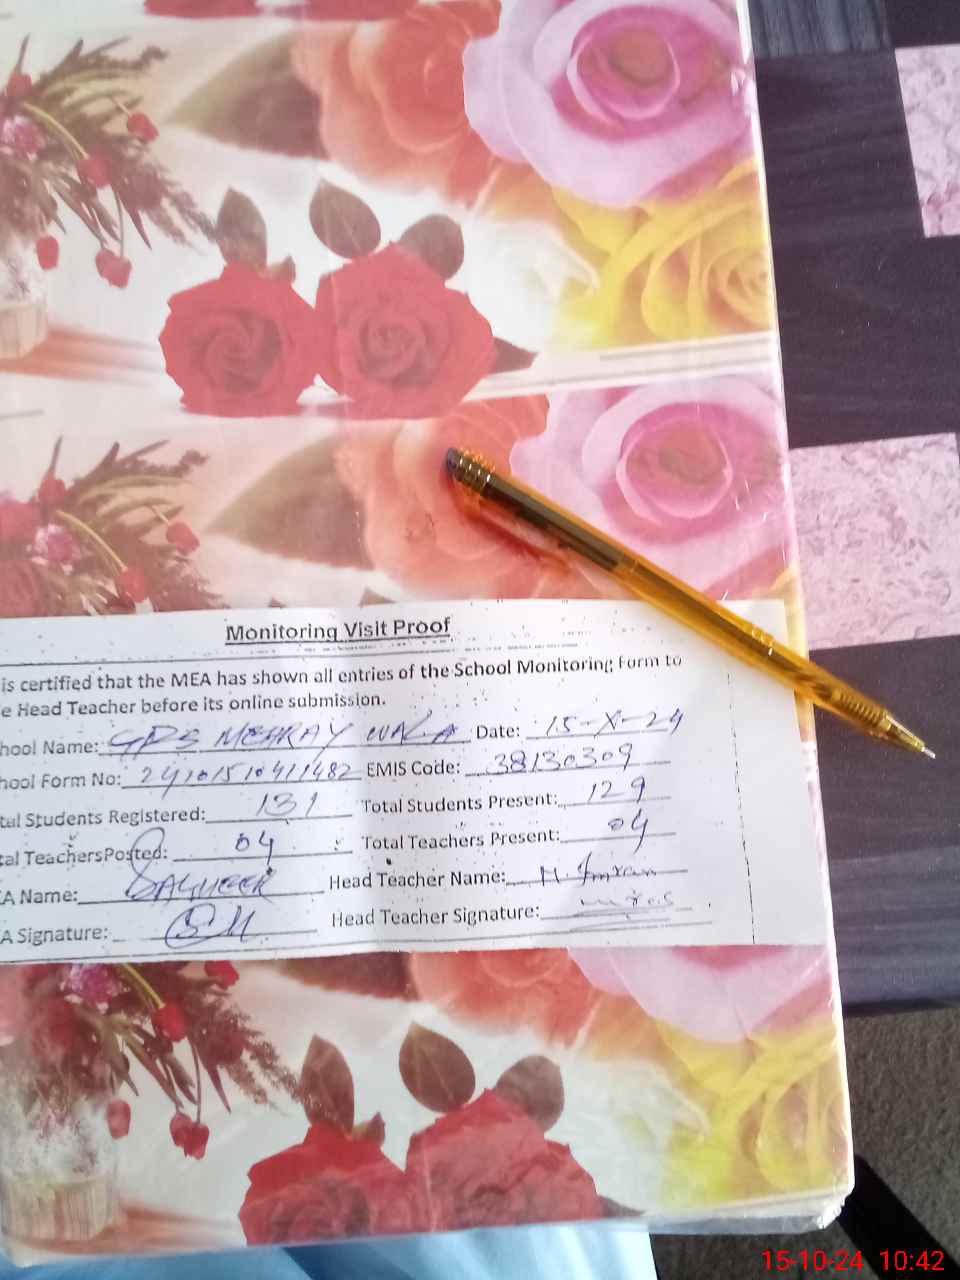 Monitoring Visit Proof
is certified that the MEA has shown all entries of the School Monitoring Form to
e Head Teacher before its online submission.
hool Name: GPS MEHRAY WALA Date: 15-X-24
hool Form No: EMIS Code: 38130309
tal Students Registered: 131 Total Students Present: 129
tal TeachersPosted: 04 Total Teachers Present: 04
A Name: Head Teacher Name: M. Imran
A Signature: Head Teacher Signature:
15-10-24 10:42